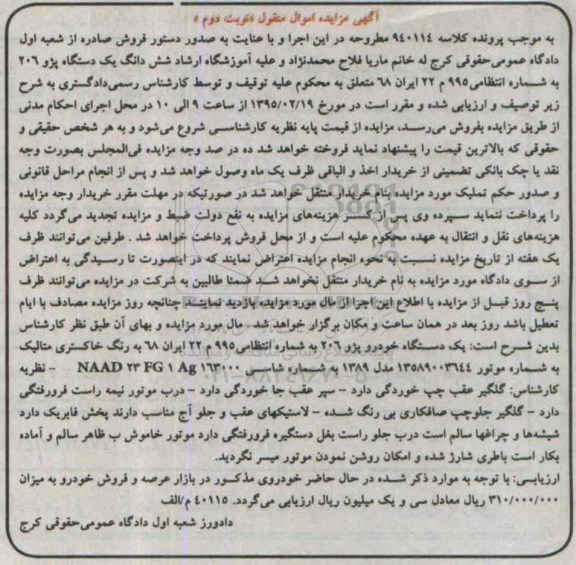 آگهی مزایده اموال منقول «نوبت دوم»
به موجب پرونده کلاسه ۹۴۰۱۱۴ مطروحه در این اجرا و با عنایت به صدور دستور فروش صادره از شعبه اول
دادگاه عمومی‌حقوقی کرج له خانم ماریا فلاح محمدنژاد و علیه آموزشگاه ارشاد شش دانگ یک دستگاه پژو ۲۰۶
به شماره انتظامی۹۹۵ م ۲۲ ایران ۶۸ متعلق به محکوم علیه توقیف و توسط کارشناس رسمی‌دادگستری به شرح
زیر توصیف و ارزیابی شده و مقرر است در مورخ ۱۳۹۵/۰۲/۱۹ از ساعت ۹ الی ۱۰ در محل اجرای احکام مدنی
از طریق مزایده بفروش می‌رسد، مزایده از قیمت پایه نظریه کارشناسی شروع می‌شود و به هر شخص حقیقی و
حقوقی که بالاترین قیمت را پیشنهاد نماید فروخته خواهد شد ده در صد وجه مزایده فی‌المجلس بصورت وجه
نقد یا چک بانکی تضمینی از خریدار اخذ و الباقی ظرف یک ماه وصول خواهد شد و پس از انجام مراحل قانونی
و صدور حکم تملیک مورد مزایده بنام خریدار منتقل خواهد شد در صورتیکه در مهلت مقرر خریدار وجه مزایده
را پرداخت ننماید سپرده وی پس از کسر هزینه‌های مزایده به نفع دولت ضبط و مزایده تجدید می‌گردد کلیه
هزینه‌های نقل و انتقال به عهده محکوم علیه است و از محل فروش پرداخت خواهد شد . طرفین می‌توانند ظرف
یک هفته از تاریخ مزایده نسبت به نحوه انجام مزایده اعتراض نمایند که در اینصورت تا رسیدگی به اعتراض
از سوی دادگاه مورد مزایده به نام خریدار منتقل نخواهد شد ضمنا طالبین به شرکت در مزایده می‌توانند ظرف
پنج روز قبل از مزایده با اطلاع این اجرا از مال مورد مزایده بازدید نمایند چنانچه روز مزایده مصادف با ایام
تعطیل باشد روز بعد در همان ساعت و مکان برگزار خواهد شد. مال مورد مزایده و بهای آن طبق نظر کارشناس
بدین شرح است: یک دستگاه خودرو پژو ۲۰۶ به شماره انتظامی۹۹۵ م ۲۲ ایران ۶۸ به رنگ خاکستری متالیک
به شماره موتور ۱۳۵۸۹۰۰۳۶۴۴ مدل ۱۳۸۹ به شماره شاسی NAAD ۲۳ FG ۱ Ag ۱۶۳۰۰۰ - نظریه
کارشناس: گلگیر عقب چپ خوردگی دارد - سپر عقب جا خوردگی دارد - درب موتور نیمه راست فرورفتگی
دارد - گلگیر جلوچپ صافکاری بی رنگ شده - لاستیکهای عقب و جلو آج مناسب دارند پخش فابریک دارد
شیشه‌ها و چراغها سالم است درب جلو راست بغل دستگیره فرورفتگی دارد موتور خاموش ب ظاهر سالم و آماده
بکار است باطری شارژ شده و امکان روشن نمودن موتور میسر نگردید.
ارزیابی: با توجه به موارد ذکر شده در حال حاضر خودروی مذکور در بازار عرصه و فروش خودرو به میزان
۳۱۰/۰۰۰/۰۰۰ ریال معادل سی و یک میلیون ریال ارزیابی می‌گردد. ۴۰۱۱۵ م/الف
دادورز شعبه اول دادگاه عمومی‌حقوقی کرج